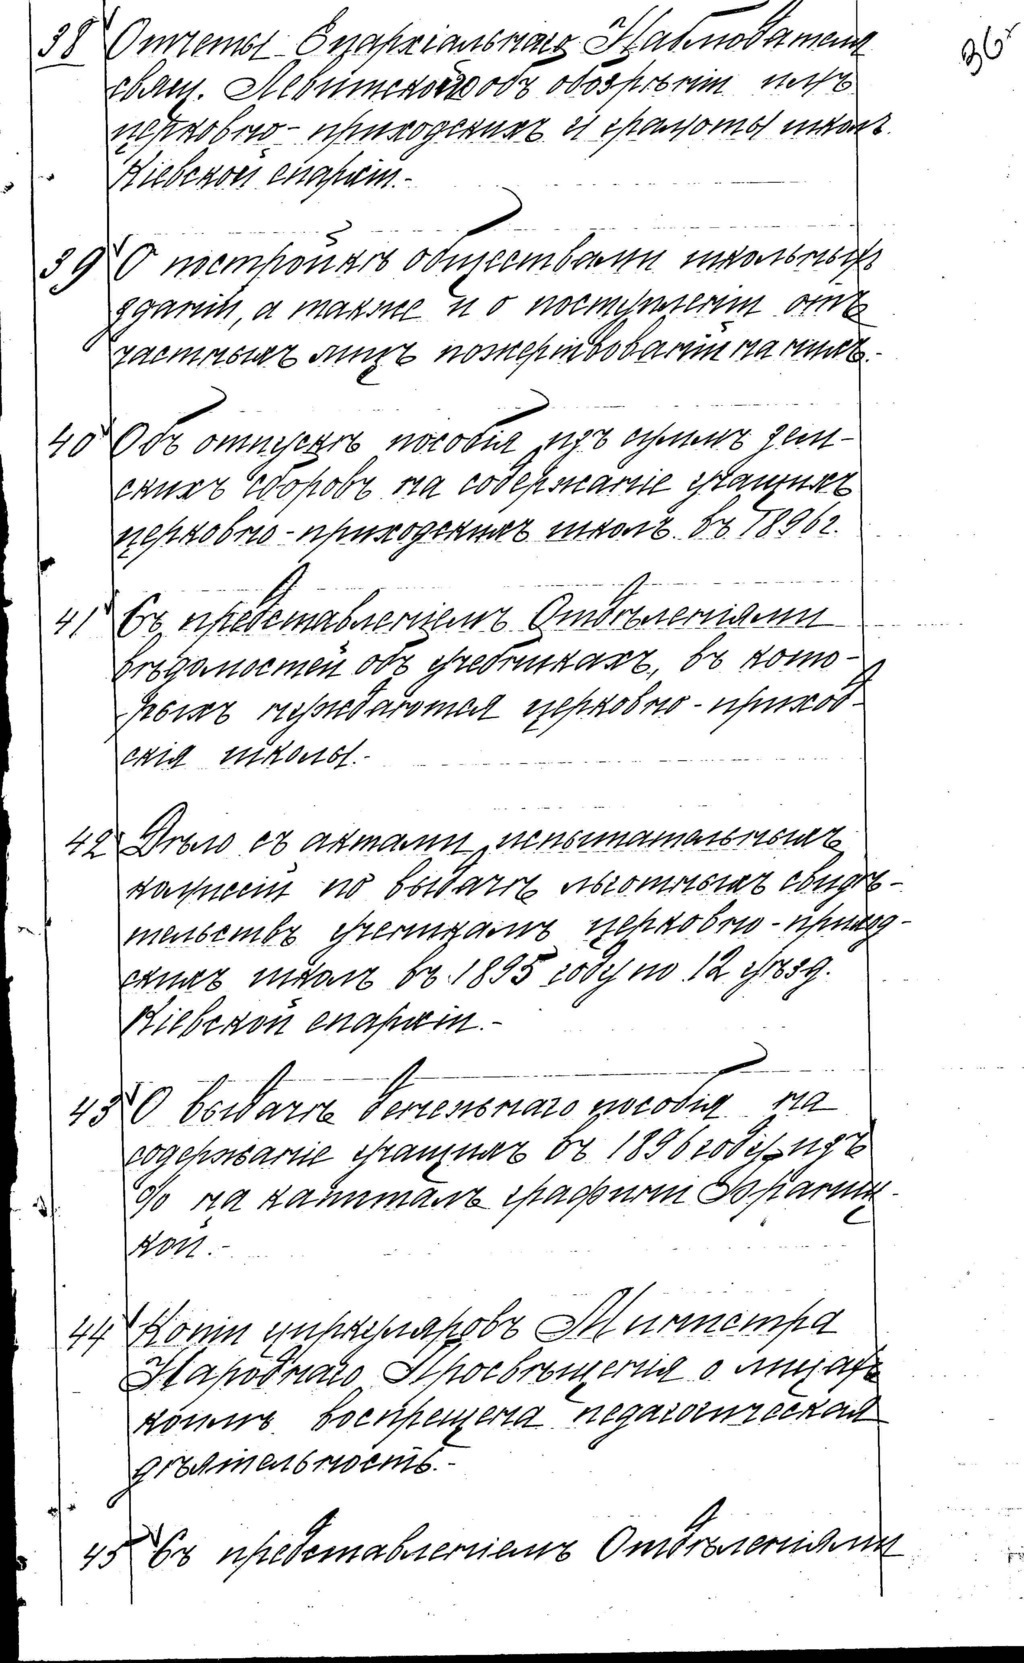 36
38 Отчеты Епархіальнаго Наблюдателя
свящ. Левитскаго объ обозрѣніи имъ
церковно-приходскихъ и грамоты школъ
Кіевской епархіи.-
39 О постройкѣ обществами школьныхъ
зданій, а также и о поступленіи отъ
частныхъ лицъ пожертвованій на нихъ.-
40 Объ отпускѣ пособія изъ суммъ зем-
скихъ сборовъ на содержаніе учащихъ
церковно-приходскихъ школъ въ 1896 г.
41 Съ представленіемъ Отдѣленіями
вѣдомостей объ учебникахъ, въ кото-
рыхъ нуждаются церковно-приход-
скія школы.-
42 Дѣло съ актами испытательныхъ
комиссій по выдачѣ льготныхъ свидѣ-
тельствъ ученикамъ церковно-приход-
скихъ школъ въ 1895 году по 12 уѣзд.
Кіевской епархіи.-
43 О выдачѣ денежнаго пособія на
содержаніе учащихъ въ 1896 году изъ
% на капиталъ графини Браниц-
кой.-
44 Копіи циркуляровъ Министра
Народнаго Просвѣщенія о лицахъ
коимъ воспрещена педагогическая
дѣятельность.-
45 Съ представленіемъ Отдѣленіями